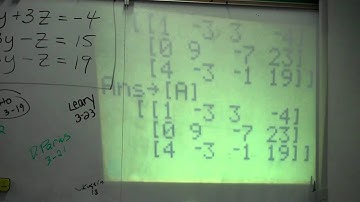 y + 3z = -4
y - z = 15
y - z = 19
[[1 -3 3 -4]
[0 9 -7 23]
[4 -3 -1 19]]
Ans→[A]
[[1 -3 3 -4]
[0 9 -7 23]
[4 -3 -1 19]]
3-19
Leary
3-23
3-21